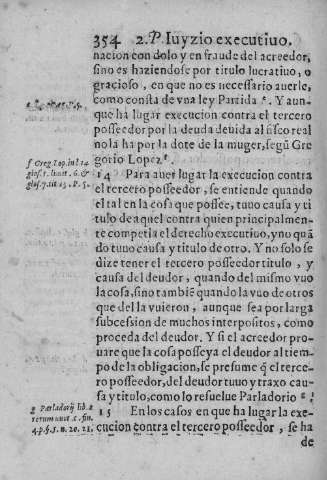 354 2. P. Iuyzio executiuo.
nacion con dolo y en fraude del acreedor,
sino es haziendose por titulo lucratiuo, o
gracioso, en que no es necessario auerle,
como consta de vna ley Partida e. Y aun-
que ha lugar execucion contra el tercero
posseedor por la deuda deuida al fisco real
no la ha por la dote de la muger, segũ Gre
gorio Lopez f.
f Greg. Lop. in l. 14
glos. 1. 
glos. 7. tit 13. P. 5.
14 Para auer lugar la execucion contra
el tercero posseedor, se entiende quando
el tal en la cosa que possee, tuuo causa y ti
tulo de aquel contra quien principalmen-
te competia el derecho executiuo, y no quã
do tuuo causa y titulo de otro. Y no solo se
dize tener el tercero posseedor titulo, y
causa del deudor, quando del mismo vuo
la cosa, sino tambiẽ quando la vuo de otros
que del la vuieron, aunque sea por larga
subcession de muchos interpositos, como
proceda del deudor. Y si el acreedor pro-
uare que la cosa posseya el deudor al tiem-
po de la obligacion, se presume q̃ el terce-
ro posseedor, del deudor tuuo y traxo cau-
sa y titulo, como lo resuelue Parladorio g
g Parladorij lib. 2
rerum quot. c. fin.
4. p. §. 5. n. 20. 21.
15 En los casos en que ha lugar la exe-
cucion contra el tercero posseedor, se ha
de